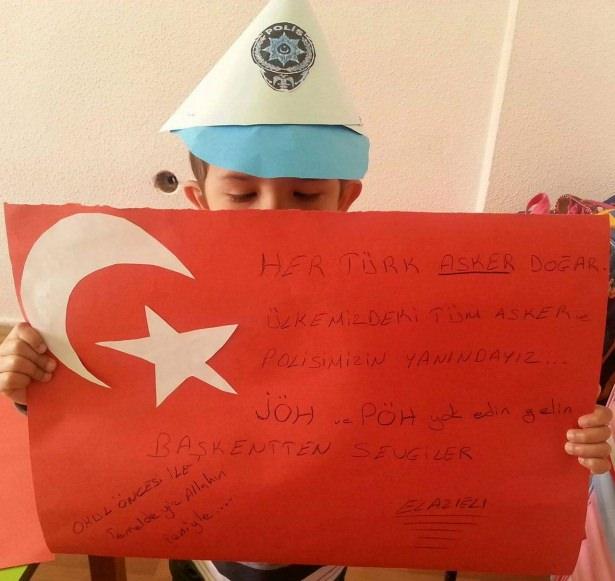 POLİS
HER TÜRK ASKER DOĞAR.
ÜLKEMİZDEKİ TÜM ASKER ve
POLİSİMİZİN YANINDAYIZ...
JÖH ve PÖH yok edin gelin
BAŞKENTTEN SEVGİLER
OKUL ÖNCESİ İLE
Temeldeyiz Allahın
izniyle....
ELAZIĞLI